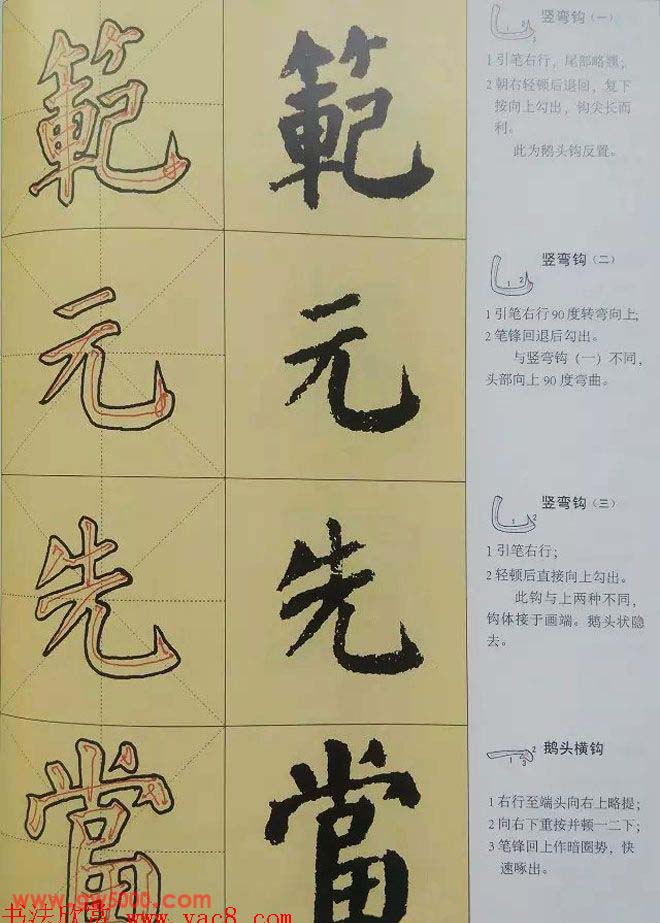 範 範
竖弯钩（一）
1 2 3
1 引笔右行，尾部略翘；
2 朝右轻顿后退回，复下
按向上勾出，钩尖长而
利。
此为鹅头钩反置。
元 元
竖弯钩（二）
1 2
1 引笔右行90度转弯向上；
2 笔锋回退后勾出。
与竖弯钩（一）不同，
头部向上90度弯曲。
先 先
竖弯钩（三）
1 2
1 引笔右行；
2 轻顿后直接向上勾出。
此钩与上两种不同，
钩体接于画端。鹅头状隐
去。
當 當
鹅头横钩
1 2 3
1 右行至端头向右上略提；
2 向右下重按并顿一二下；
3 笔锋回上作暗圈势，快
速啄出。
书法欣赏 www.yac8.com